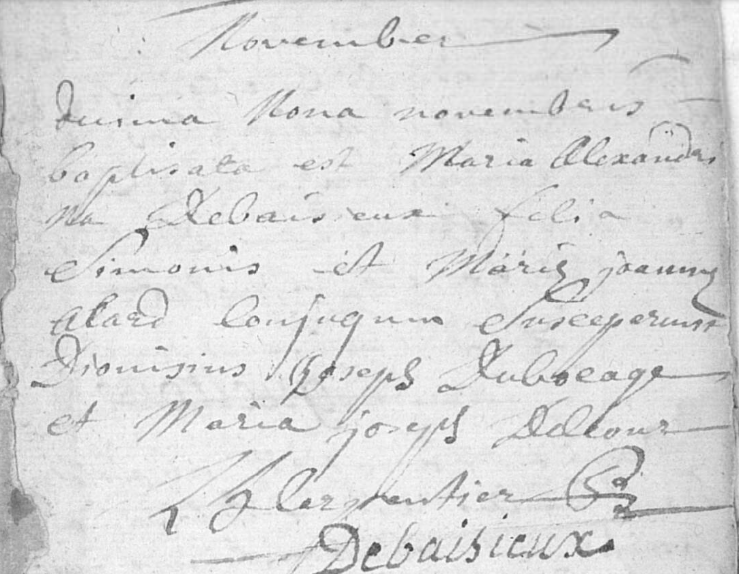 November
decima Nona novembris
baptisata est Maria Alexandri
na Debaisieux filia
Simonis et Mariæ joannæ
alard Conjugum Susceperunt
Dionisius joseph Dubocage
et Maria joseph Delcour
Carpentier
Debaisieux